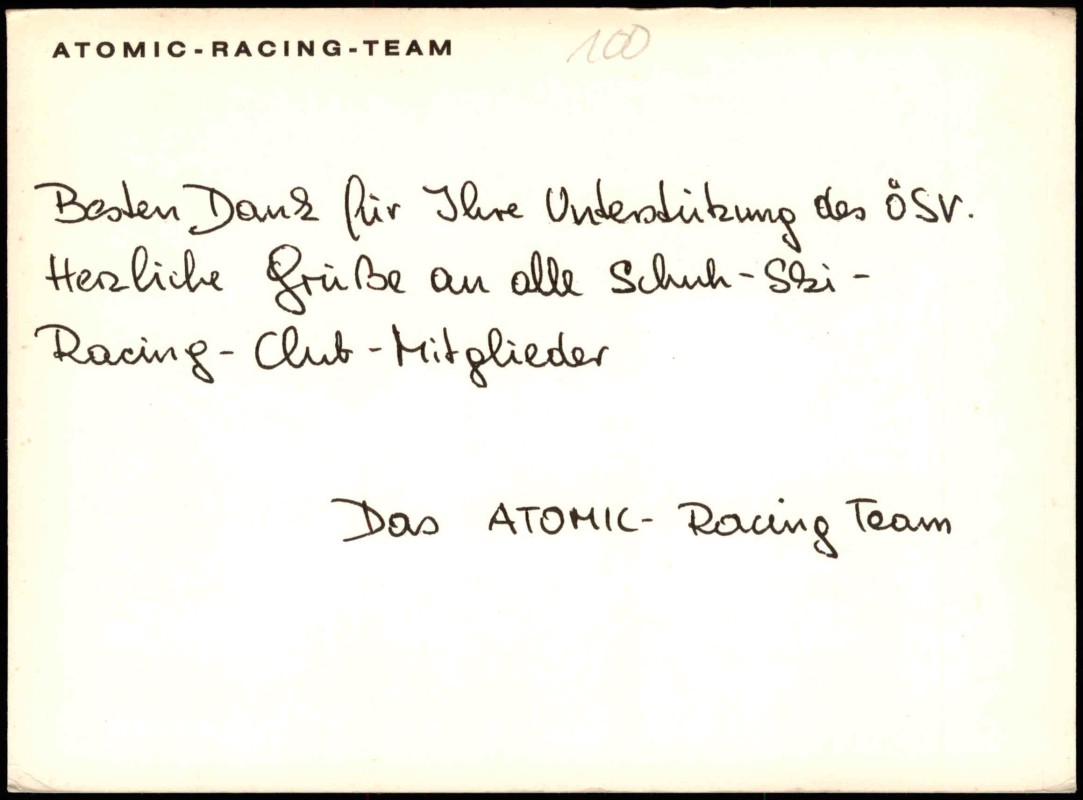 ATOMIC-RACING-TEAM 100
Besten Dank für Ihre Unterstützung des ÖSV.
Herzliche Grüße an alle Schuh-Ski-
Racing-Club-Mitglieder
Das ATOMIC- Racing Team